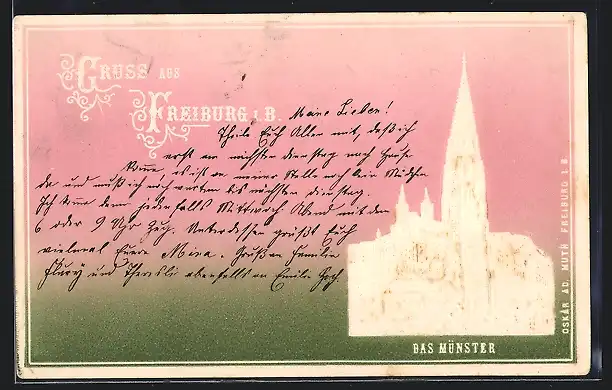 GRUSS AUS
FREIBURG i. B.
Meine Lieben!
Theile Euch Allen mit, daß ich
erst am nächsten Dienstag nach Hause
komme, es ist an meiner Stelle noch kein Mädchen
da und muß ich noch warten bis nächsten Dienstag.
Ich komme dann jedenfalls Mittwoch Abend mit dem
6 oder 9 Uhr Zug. Unterdessen grüßt Euch
vielmal Euere Mina. Grüßen Familie
und ebenfalls an Emilie
DAS MÜNSTER
OSKAR AD. MUTH FREIBURG i. B.